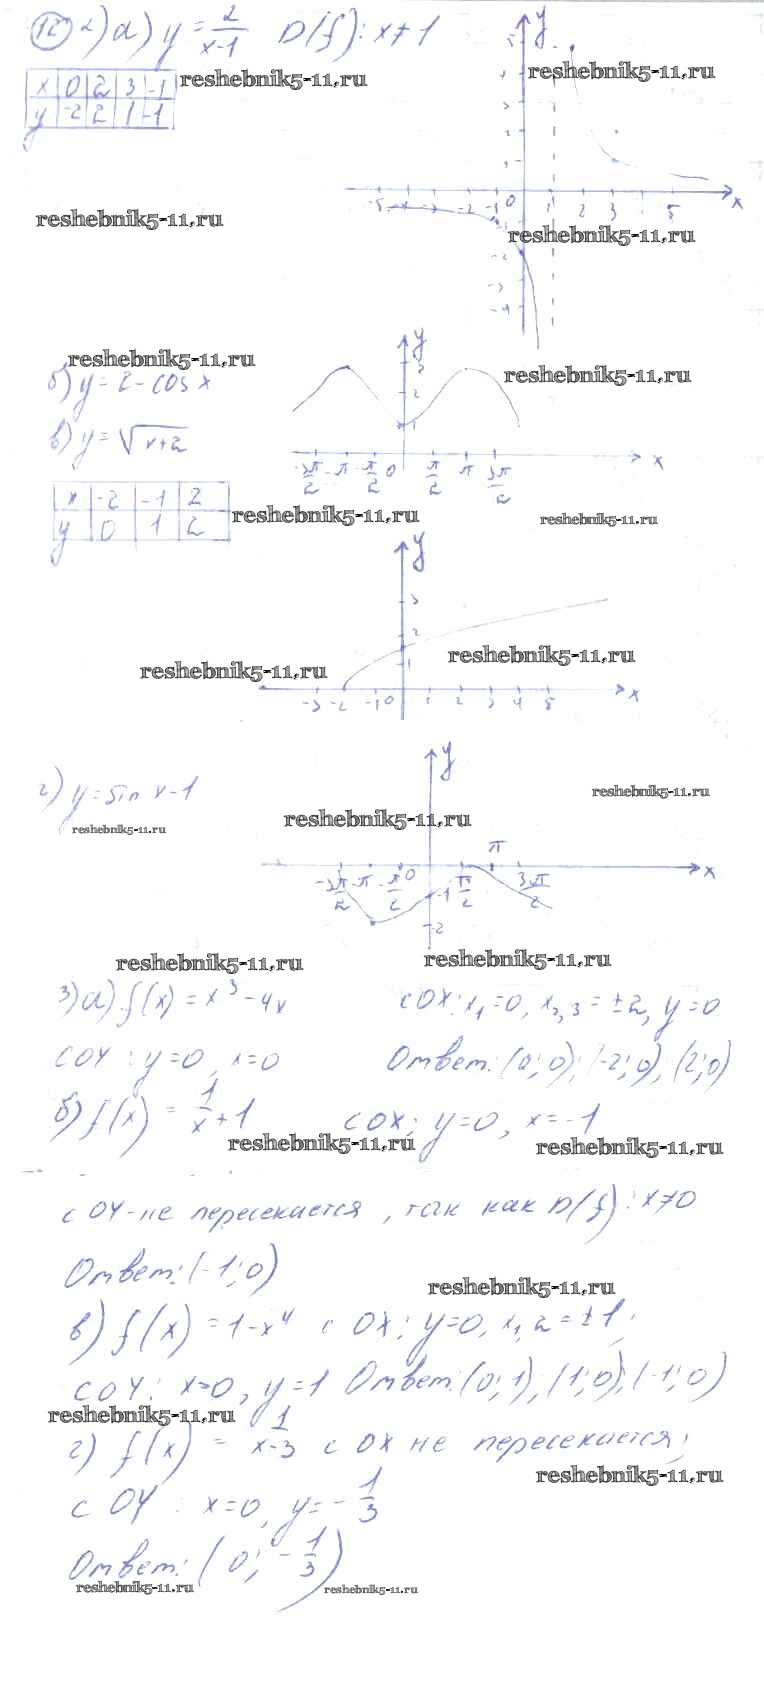 12 2) а) y = 2/(x-1) D(f): x≠1
reshebnik5-11.ru
reshebnik5-11.ru
x 0 2 3 -1
y -2 2 1 -1
reshebnik5-11.ru
reshebnik5-11.ru
y
x
reshebnik5-11.ru
reshebnik5-11.ru
б) y = 2 - cos x
в) y = √(x+2)
y
3
2
1
-3π/2 -π -π/2 0 π/2 π 3π/2 x
x -2 -1 2
y 0 1 2
reshebnik5-11.ru
reshebnik5-11.ru
y
3
2
1
reshebnik5-11.ru
reshebnik5-11.ru
-3 -2 -1 0 1 2 3 4 5 x
г) y = sin x - 1
reshebnik5-11.ru
reshebnik5-11.ru
reshebnik5-11.ru
y
π
-3π/2 -π -π/2 0 π/2 3π/2 x
-1
-2
reshebnik5-11.ru
reshebnik5-11.ru
3) а) f(x) = x³ - 4x с OX: x₁=0, x₂,₃ = ±2, y=0
с OY: y=0, x=0 Ответ: (0; 0); (-2; 0), (2; 0)
б) f(x) = 1/x + 1 с OX: y=0, x=-1
reshebnik5-11.ru
reshebnik5-11.ru
с OY - не пересекается, так как D(f): x≠0
Ответ: (-1; 0)
reshebnik5-11.ru
в) f(x) = 1 - x⁴ с OX: y=0, x₁,₂ = ±1;
с OY: x=0, y=1 Ответ: (0; 1), (1; 0); (-1; 0)
reshebnik5-11.ru
г) f(x) = 1/(x-3) с OX не пересекается;
reshebnik5-11.ru
с OY: x=0, y = -1/3
Ответ: (0; -1/3)
reshebnik5-11.ru
reshebnik5-11.ru